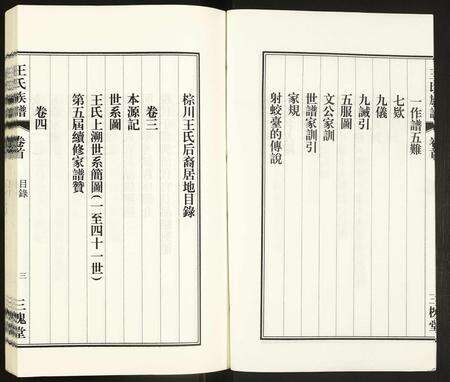 一作譜五難
七欵
九儀
九誡引
五服圖
文公家訓
世譜家訓引
家規
射蛟臺的傳說
棕川王氏后裔居地目錄
卷三
本源記
世系圖
王氏上溯世系簡圖(一至四十一世)
第五屆續修家譜贊
卷四
王氏族譜
卷首
目錄
三
三槐堂